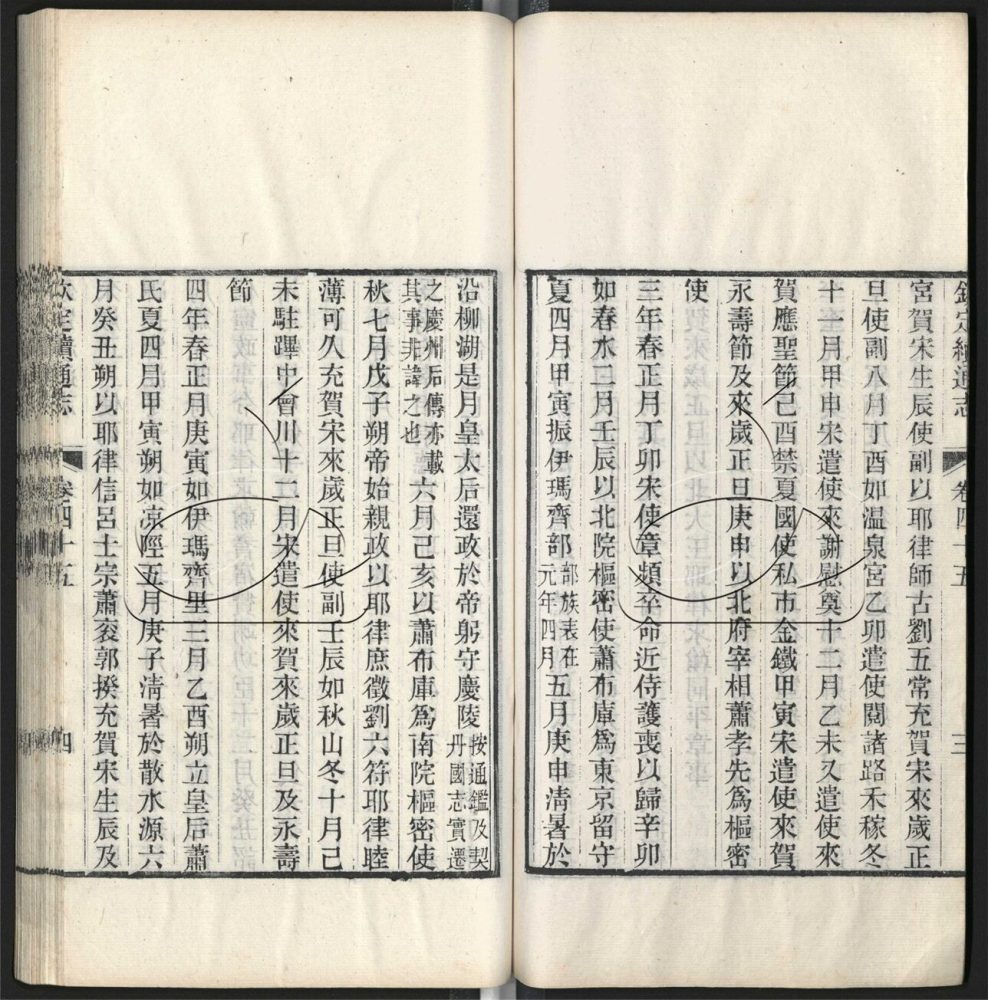 欽定續通志
卷四十五
三
宮賀宋生辰使副以耶律師古劉五常充賀宋來歲正
旦使副八月丁酉如温泉宮乙卯遣使閱諸路禾稼冬
十一月甲申宋遣使來謝慰奠十二月乙未又遣使來
賀應聖節己酉禁夏國使私市金鐵甲寅宋遣使來賀
永壽節及來歲正旦庚申以北府宰相蕭孝先爲樞密
使
三年春正月丁卯宋使章頻卒命近侍護喪以歸辛卯
如春水三月壬辰以北院樞密使蕭布庫爲東京留守
夏四月甲寅振伊瑪齊部部族表在元年四月五月庚申清暑於
沿柳湖是月皇太后還政於帝躬守慶陵按通鑑及契丹國志實遷
之慶州后傳亦載其事非諱之也六月己亥以蕭布庫爲南院樞密使
秋七月戊子朔帝始親政以耶律庶徵劉六符耶律睦
薄可久充賀宋來歲正旦使副壬辰如秋山冬十月己
未駐蹕中會川十二月宋遣使來賀來歲正旦及永壽
節
四年春正月庚寅如伊瑪齊里三月乙酉朔立皇后蕭
氏夏四月甲寅朔如凉陘五月庚子清暑於散水源六
月癸丑朔以耶律信呂士宗蕭衮郭揆充賀宋生辰及
欽定續通志
卷四十五
四